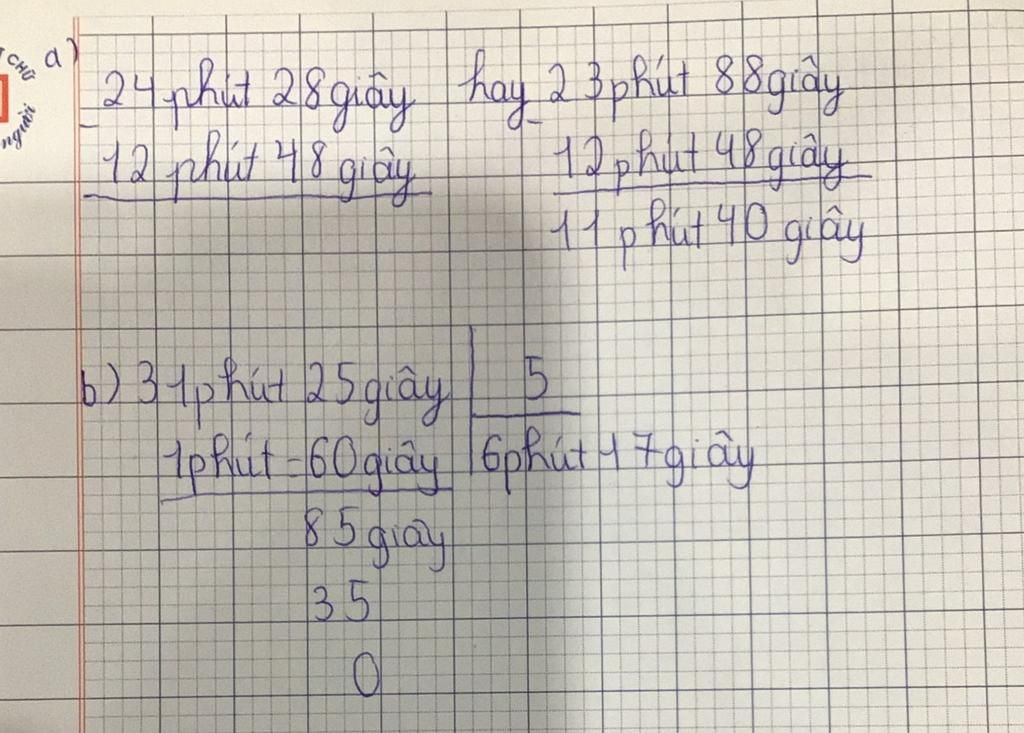 CHỮ
người
a)
24 phút 28 giây hay 23 phút 88 giây
- -
12 phút 48 giây 12 phút 48 giây
11 phút 40 giây
b) 31 phút 25 giây 5
1 phút = 60 giây 6 phút 17 giây
85 giây
35
0